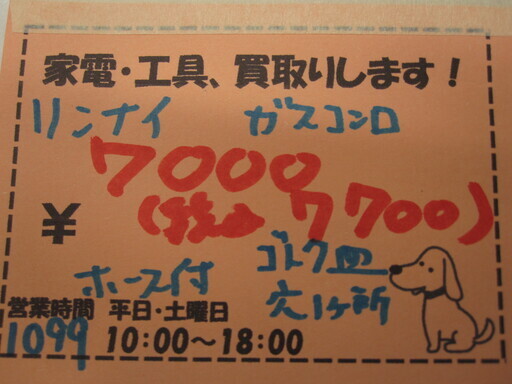 家電・工具、買取りします！
リンナイ ガスコンロ
7000
¥ (税込 7700)
ホース付 ゴトク皿
穴1ヶ所
営業時間 平日・土曜日
1099 10:00～18:00